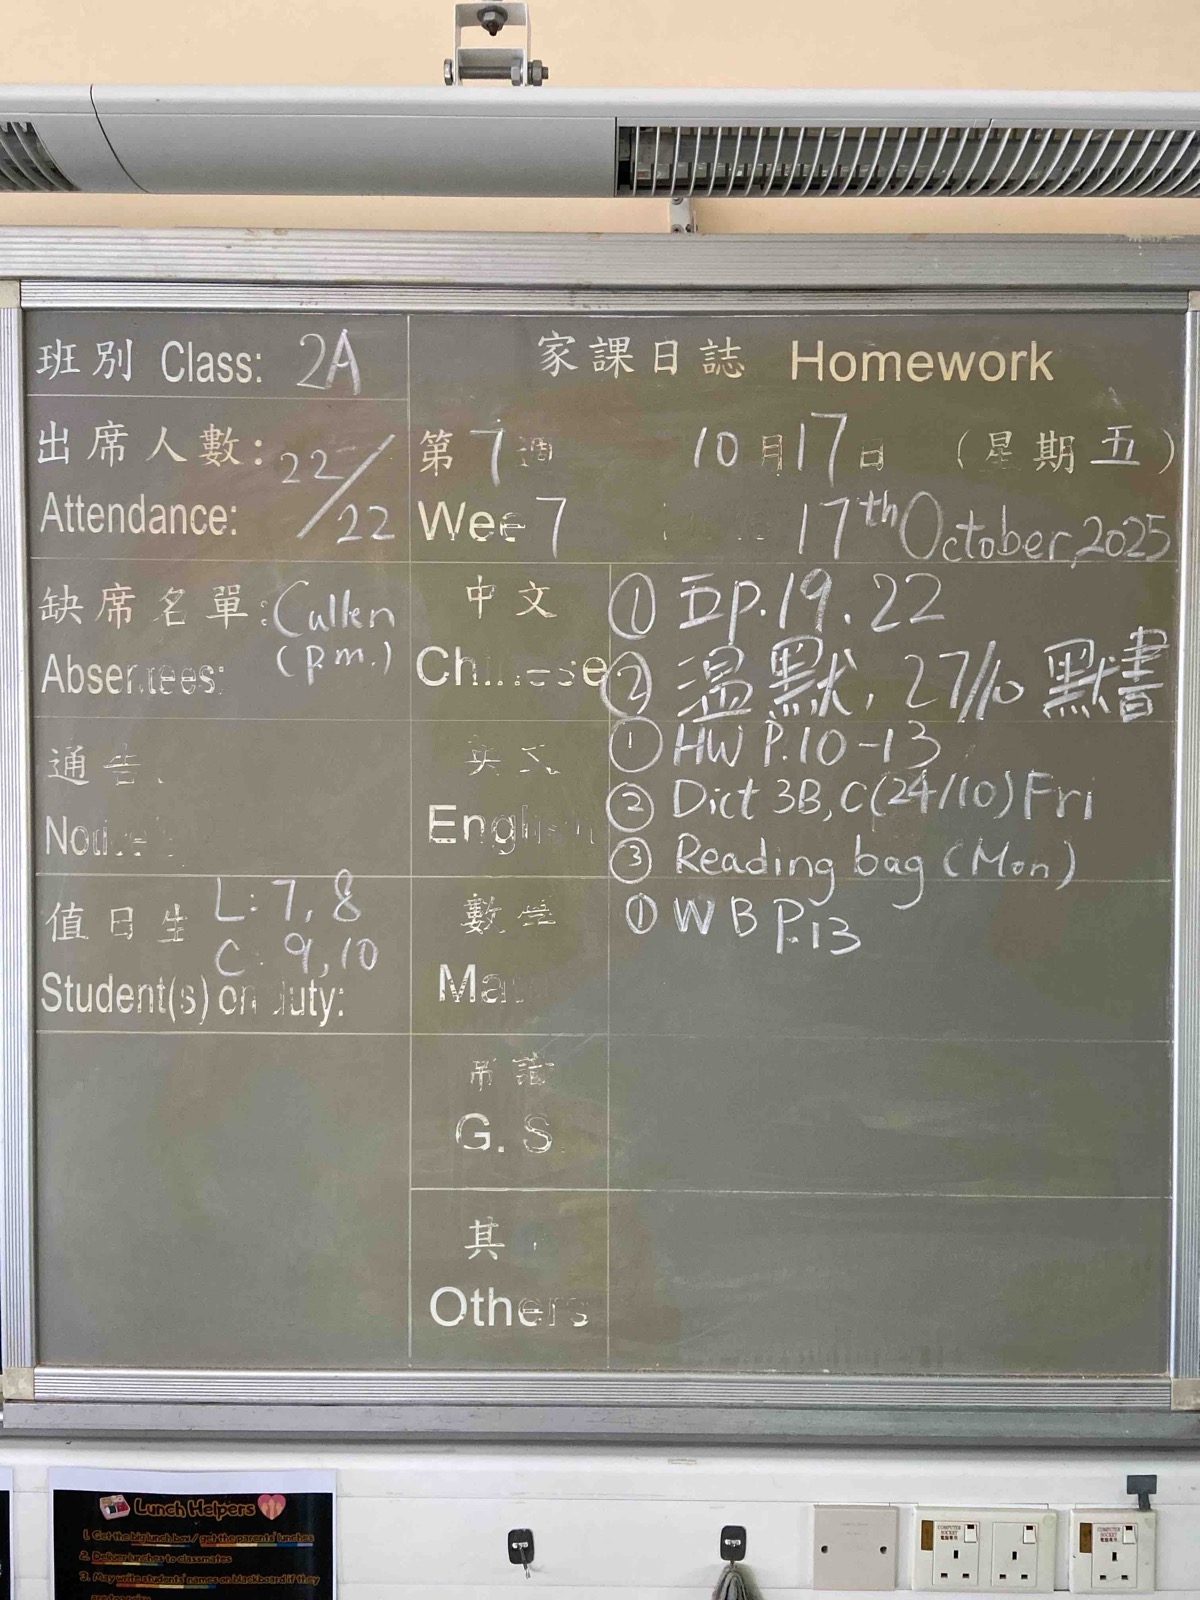 班別 Class: 2A
家課日誌 Homework
出席人數: 22/22
Attendance:
第7週 10月17日 (星期五)
Wee 7 17th October, 2025
缺席名單: Cullen
Absentees: (p.m.)
中文 ① 乪p.19.22
Chinese ② 温默, 27/10 默書
通告
Notice
英文 ① HW P.10-13
English ② Dict 3B, C (24/10) Fri
③ Reading bag (Mon)
值日生 L: 7, 8
C: 9, 10
Student(s) on duty:
數學 ① WB P.13
Ma
常識
G. S
其
Others
Lunch Helpers
1. Get the big lunch box / get the parents' lunches
2. Deliver lunches to classmates
3. May write students' names on blackboard if they
COMPUTER SOCKET
電腦專用
COMPUTER SOCKET
電腦專用